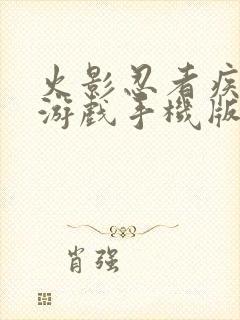 火影忍者疾
游戏手機版
肖强